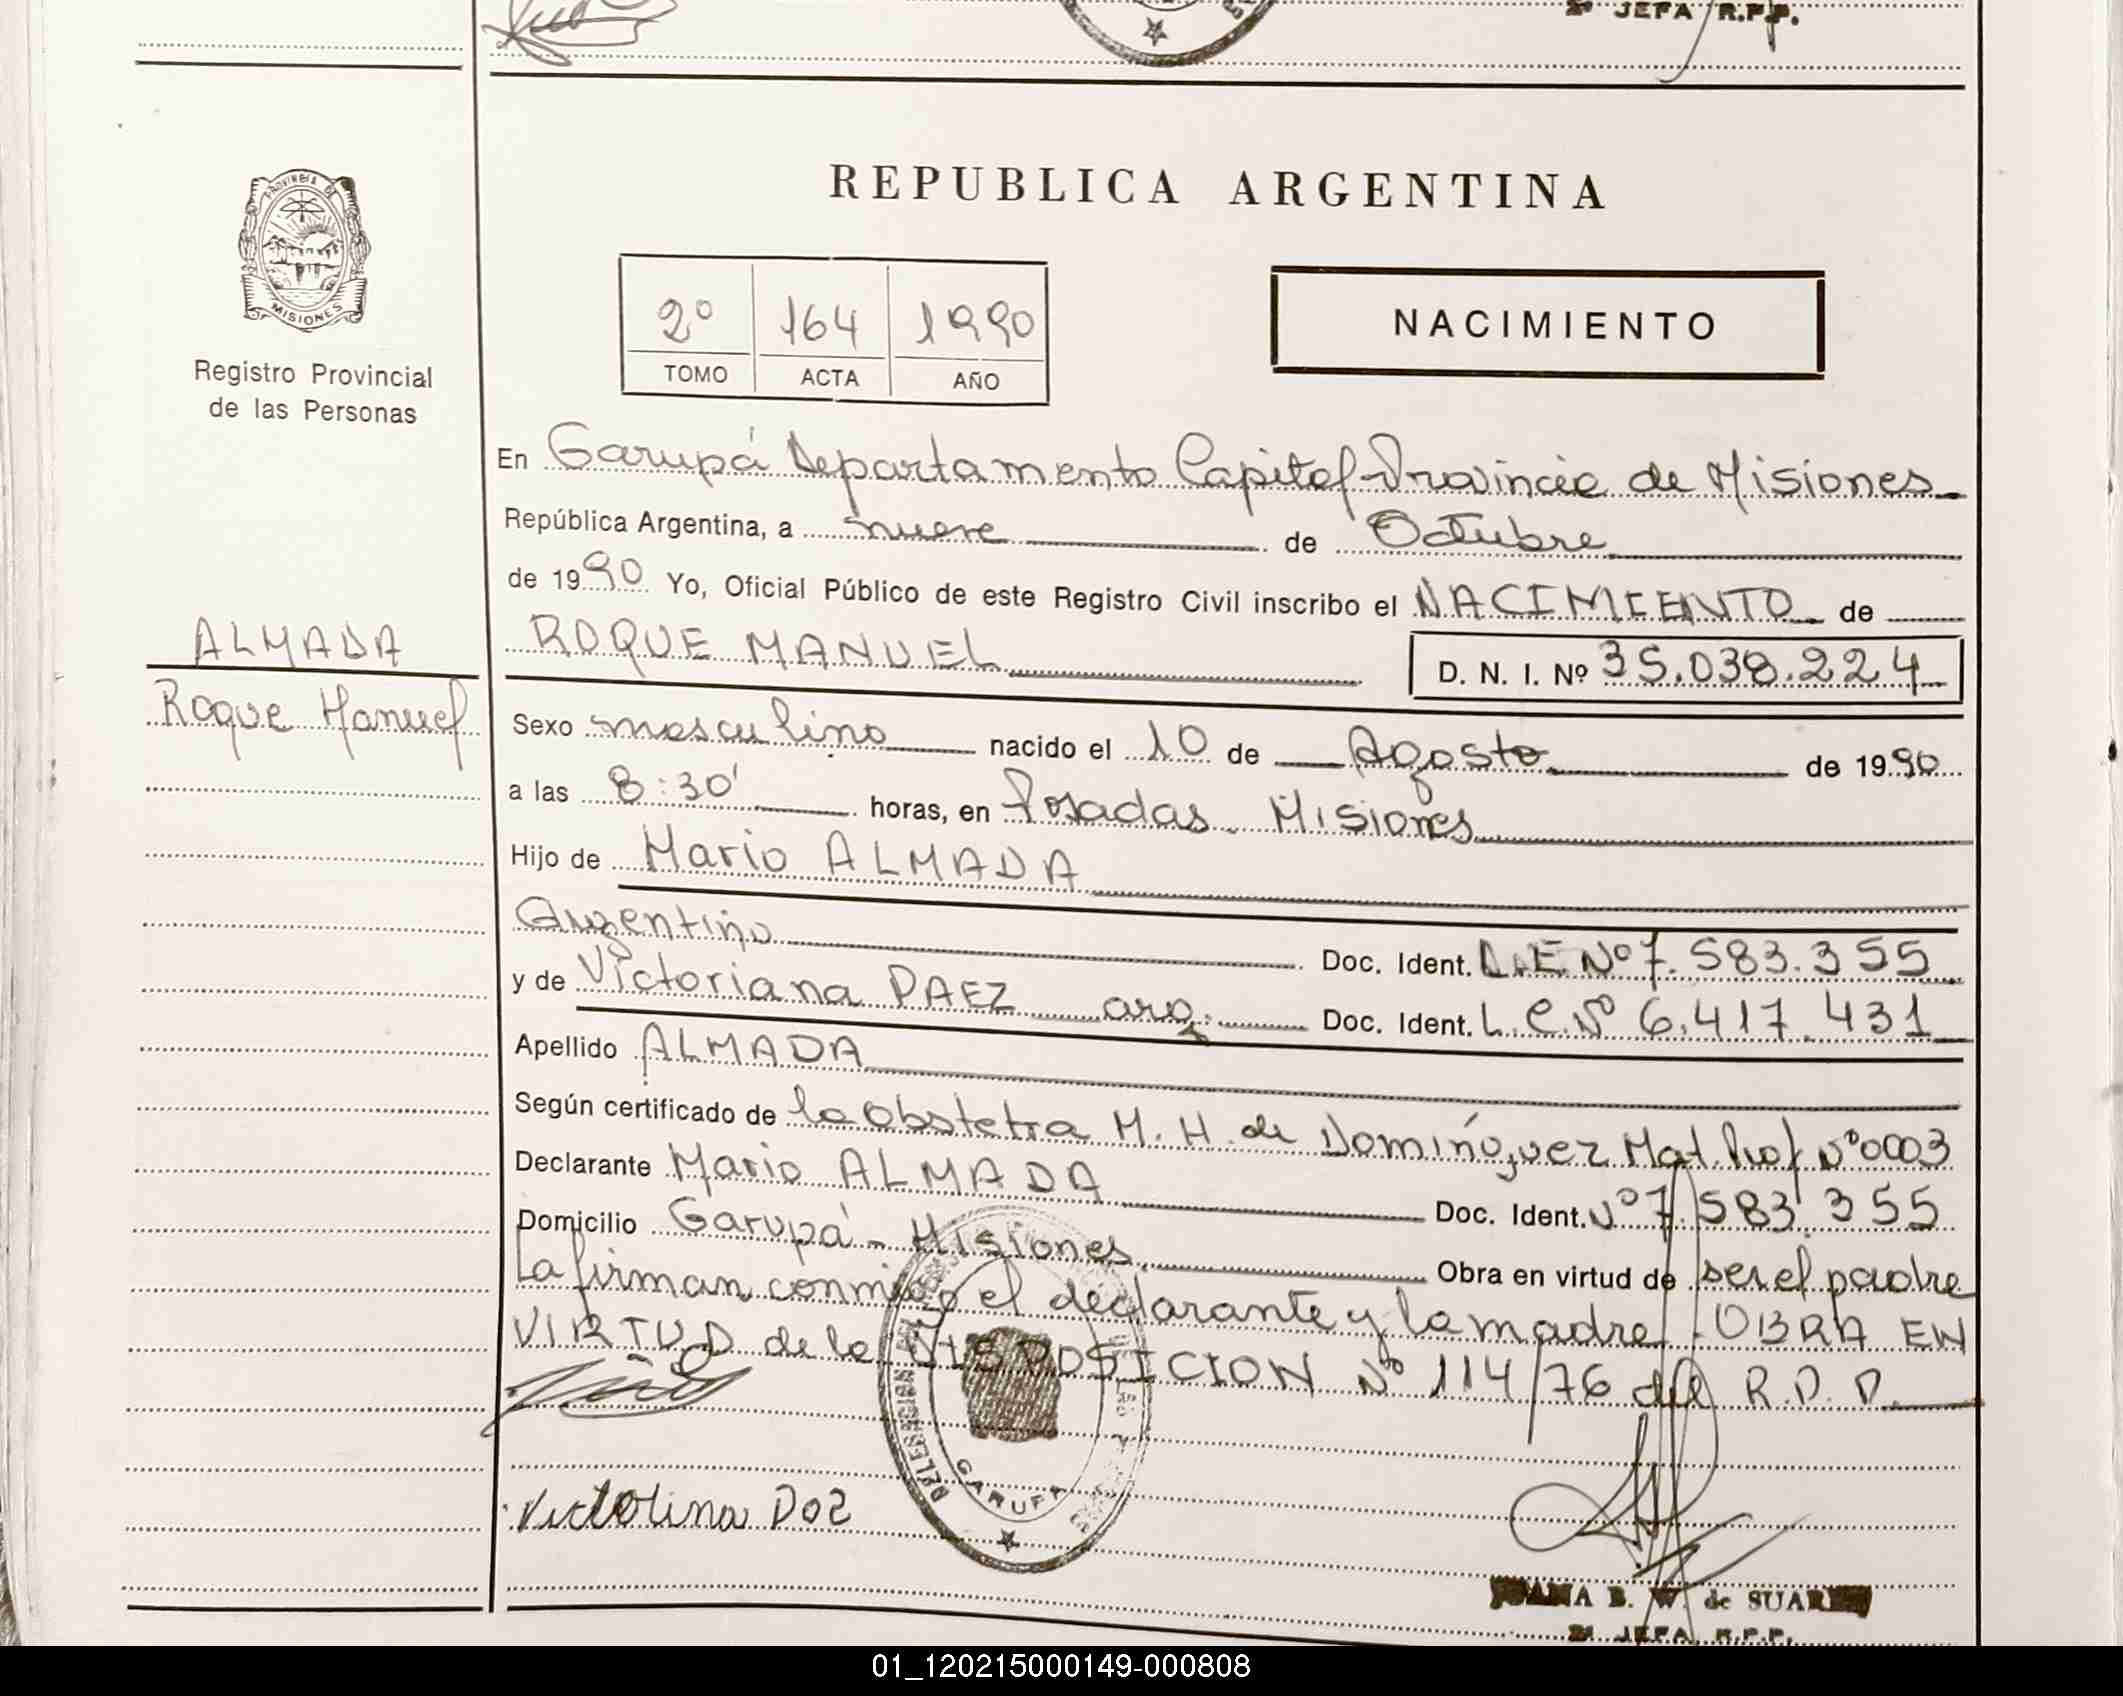 2º JEFA R.P.P.
PROVINCIA DE
MISIONES
Registro Provincial
de las Personas
ALMADA
Roque Manuel
REPUBLICA ARGENTINA
2º 164 1990
TOMO ACTA AÑO
NACIMIENTO
En Garupá Departamento Capital Provincia de Misiones
República Argentina, a nueve de Octubre
de 1990 Yo, Oficial Público de este Registro Civil inscribo el NACIMIENTO de
ROQUE MANUEL D. N. I. Nº 35.038.224
Sexo masculino nacido el 10 de Agosto de 1990
a las 8:30' horas, en Posadas. Misiones
Hijo de Mario ALMADA
Argentino Doc. Ident. L.E Nº 7.583.355
y de Victoriana PAEZ arg. Doc. Ident. L.C.Nº 6.417.431
Apellido ALMADA
Según certificado de la Obstetra M. H. de Domínguez Mat. Prof Nº 0003
Declarante Mario ALMADA Doc. Ident. Nº 7.583.355
Domicilio Garupá - Misiones Obra en virtud de ser el padre
La firman conmigo el declarante y la madre. OBRA EN
VIRTUD de la DISPOSICION Nº 114/76 del R.P.P.
GARUPA
Victolina Doz
B. W. de SUAREZ
2ª JEFA R.P.P.
01_120215000149-000808